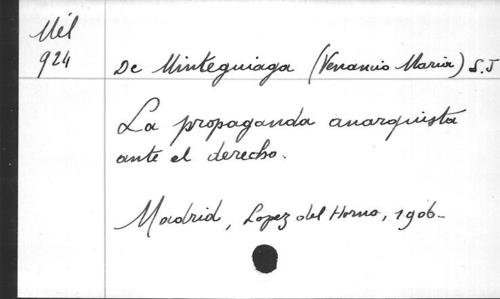 Mél
924
De Minteguiaga (Venancio Maria) S.J
La propaganda anarquista
ante el derecho.
Madrid, Lopez del Horno, 1906_